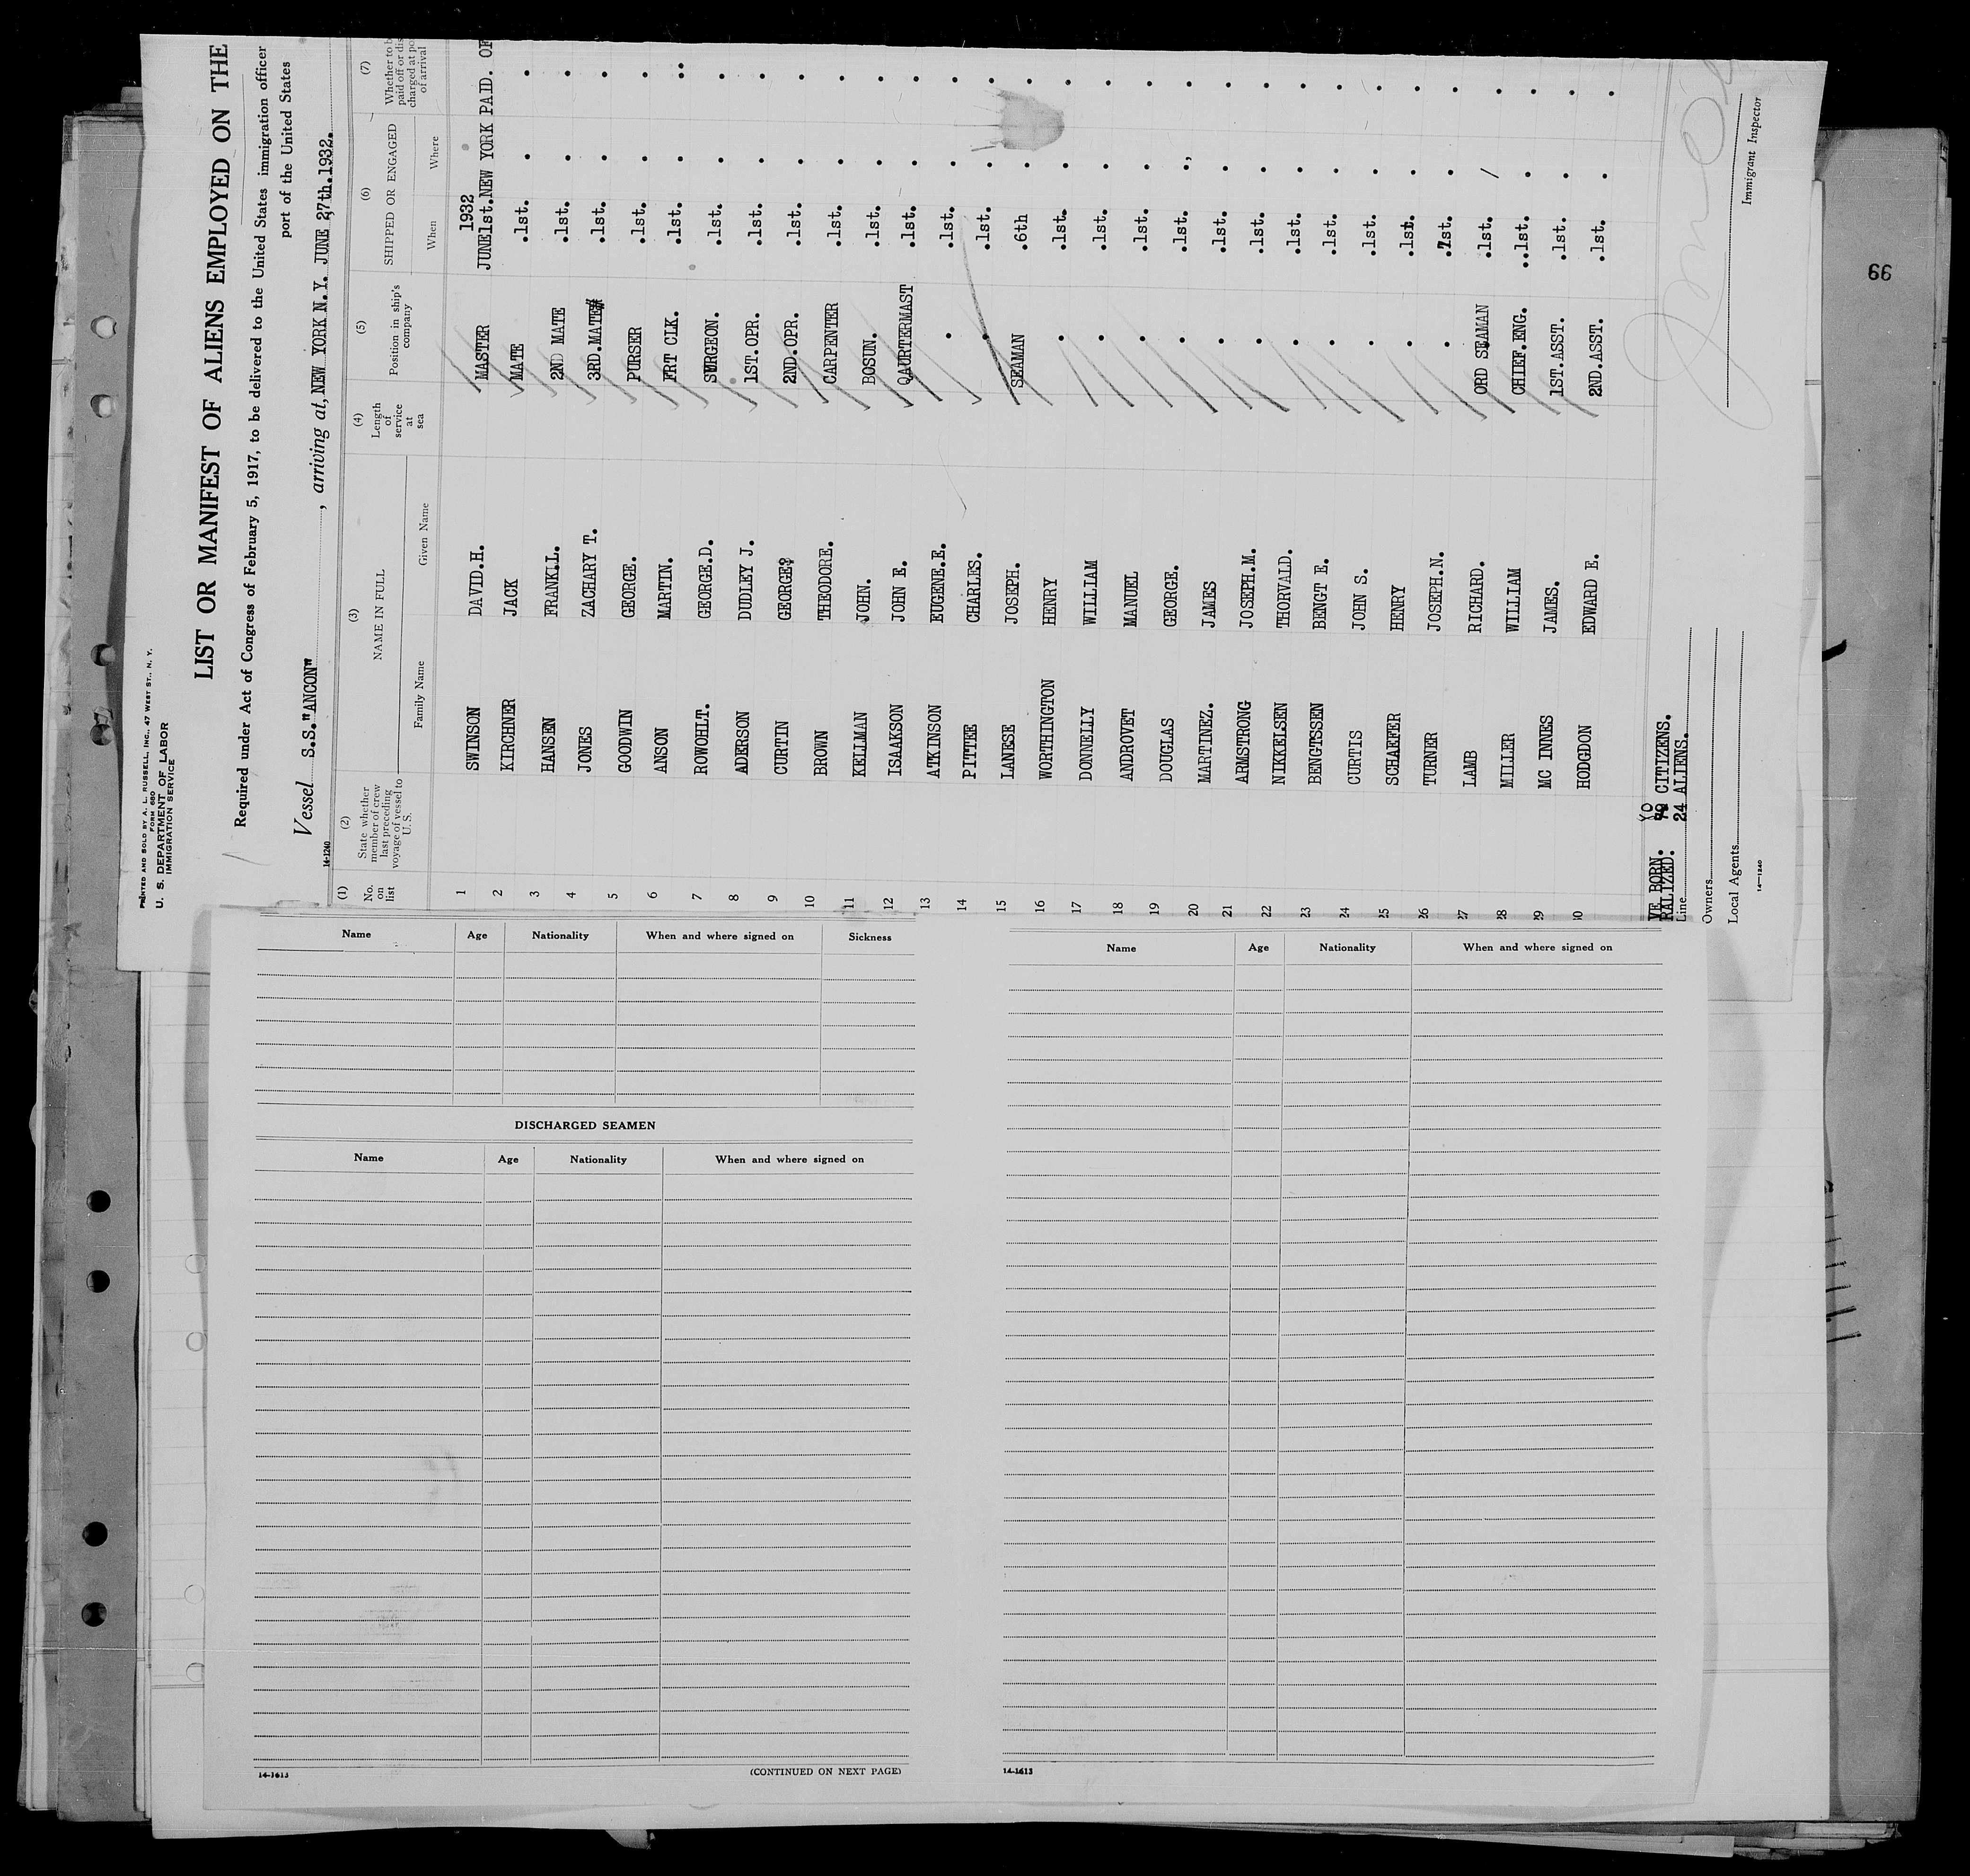 PRINTED AND SOLD BY A. L. RUSSELL, INC., 47 WEST ST., N. Y.
FORM 680
U. S. DEPARTMENT OF LABOR
IMMIGRATION SERVICE
LIST OR MANIFEST OF ALIENS EMPLOYED ON THE
Required under Act of Congress of February 5, 1917, to be delivered to the United States immigration officer
port of the United States
Vessel S.S."ANCON" , arriving at, NEW YORK N.Y. JUNE 27th.1932.
14-1240
(1) No. on list (2) State whether member of crew last preceding voyage of vessel to U.S. (3) NAME IN FULL Family Name Given Name (4) Length of service at sea (5) Position in ship's company (6) SHIPPED OR ENGAGED When Where (7) Whether to b paid off or dis charged at po of arrival
1932
1 SWINSON DAVID.H. MASTER JUNE1st. NEW YORK PAID. OF
2 KIRCHNER JACK MATE .1st. . .
3 HANSEN FRANKLL. 2ND MATE .1st. . .
4 JONES ZACHARY T. 3RD.MATE# .1st. . .
5 GOODWIN GEORGE. PURSER .1st. . .
6 ANSON MARTIN. FRT CLK. .1st. . :
7 ROWOHLT. GEORGE.D. SURGEON. .1st. . .
8 ADERSON DUDLEY J. 1ST.OPR. .1st. . .
9 CURTIN GEORGE? 2ND.OPR. .1st. . .
10 BROWN THEODORE. CARPENTER .1st. . .
11 KELLMAN JOHN. BOSUN. .1st. . .
12 ISAAKSON JOHN E. QAURTERMAST .1st. . .
13 ATKINSON EUGENE.E. . .1st. . .
14 PITTEE CHARLES. . .1st. . .
15 LANESE JOSEPH. SEAMAN .6th . .
16 WORTHINGTON HENRY . .1st. . .
17 DONNELLY WILLIAM . .1st. . .
18 ANDROVET MANUEL . .1st. . .
19 DOUGLAS GEORGE. . .1st. ., .
20 MARTINEZ. JAMES . .1st. . .
21 ARMSTRONG JOSEPH.M. . .1st. . .
22 NIKKELSEN THORVALD. . .1st. . .
23 BENGTSSEN BENGT E. . .1st. . .
24 CURTIS JOHN S. . .1st. . .
25 SCHAEFER HENRY . .1st. . .
26 TURNER JOSEPH.N. . .7st. . .
27 LAMB RICHARD. ORD SEAMAN .1st. / .
28 MILLER WILLIAM CHIEF.ENG. ..1st. . .
29 MC INNES JAMES. 1ST.ASST. .1st. . .
30 HODGDON EDWARD E. 2ND.ASST. .1st. . .
VE BORN. 70 CITIZENS.
RALIZED: 24 ALIENS.
Line
Owners
Local Agents
14—1240
Immigrant Inspector
66
Name Age Nationality When and where signed on Sickness
DISCHARGED SEAMEN
Name Age Nationality When and where signed on
14-1613 (CONTINUED ON NEXT PAGE)
Name Age Nationality When and where signed on
14-1613